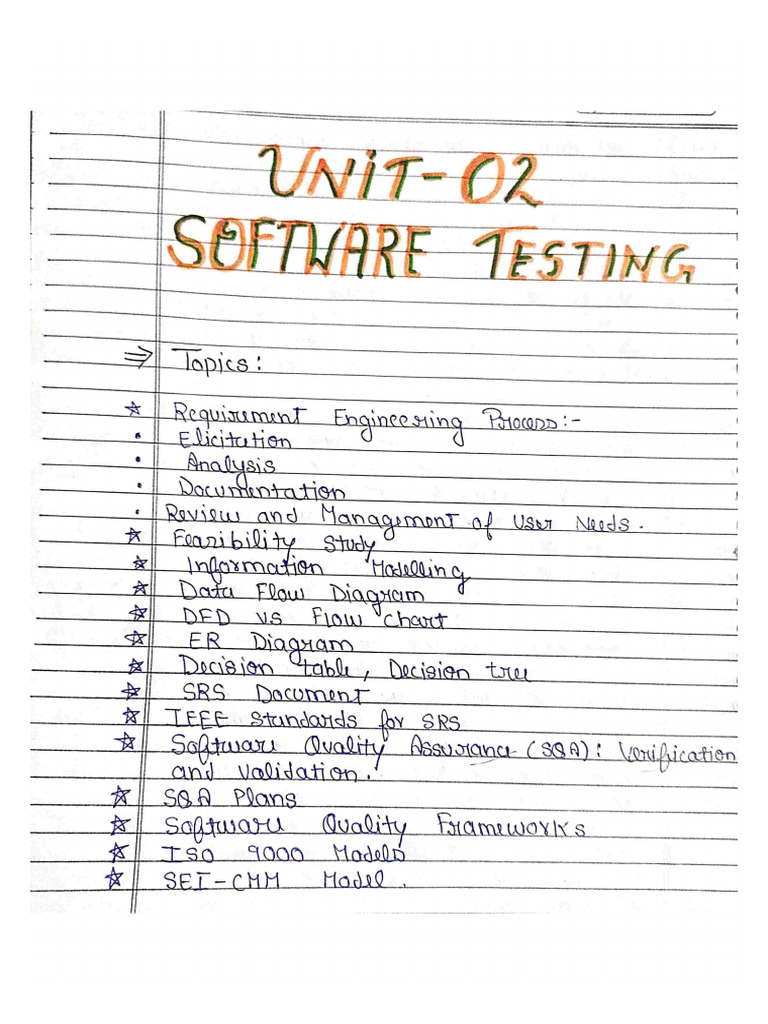 UNIT-02
SOFTWARE TESTING
⇒ Topics:
☆ Requirement Engineering Process:-
• Elicitation
• Analysis
• Documentation
• Review and Management of User Needs.
☆ Feasibility Study
☆ Information Modelling
☆ Data Flow Diagram
☆ DFD vs Flow Chart
☆ ER Diagram
☆ Decision table, Decision tree
☆ SRS Document
☆ IEEE Standards for SRS
☆ Software Quality Assurance (SQA): Verification
and validation.
☆ SQA Plans
☆ Software Quality Frameworks
☆ ISO 9000 Models
☆ SEI-CMM Model.